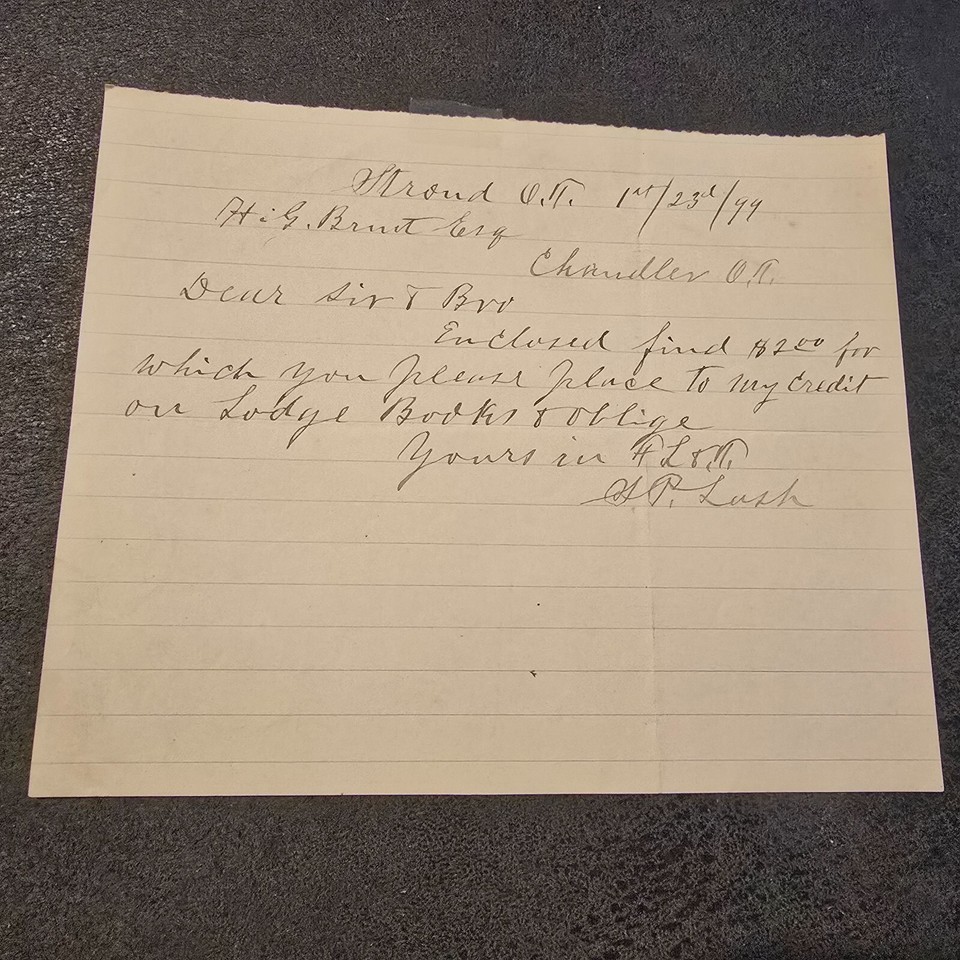 Stroud O.T. 1st/23d/99
H. G. Brunt Esq
Chandler O.T.
Dear Sir & Bro
Enclosed find $2.00 for
which you please place to my credit
on Lodge Books & oblige
Yours in F L & T.
P. Lash